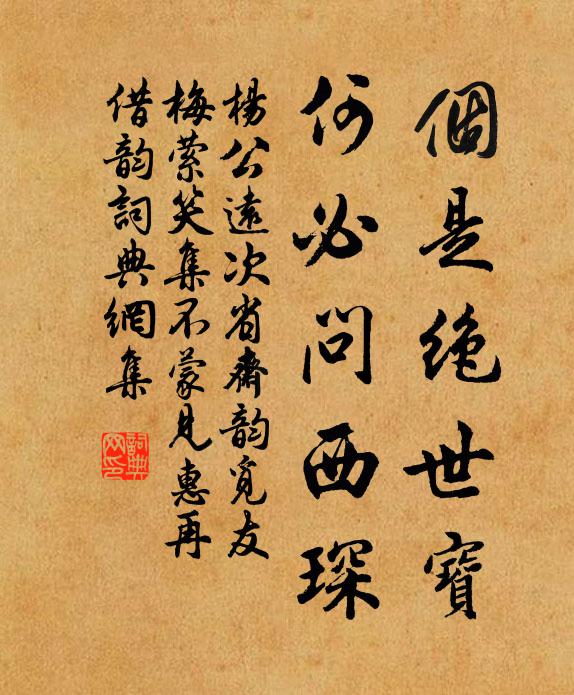 個是絶世寶
何必問西琛
楊公遠次省齋韵覓友
梅縈笑集不蒙見惠再
借韵詞典網集
詞典
网印